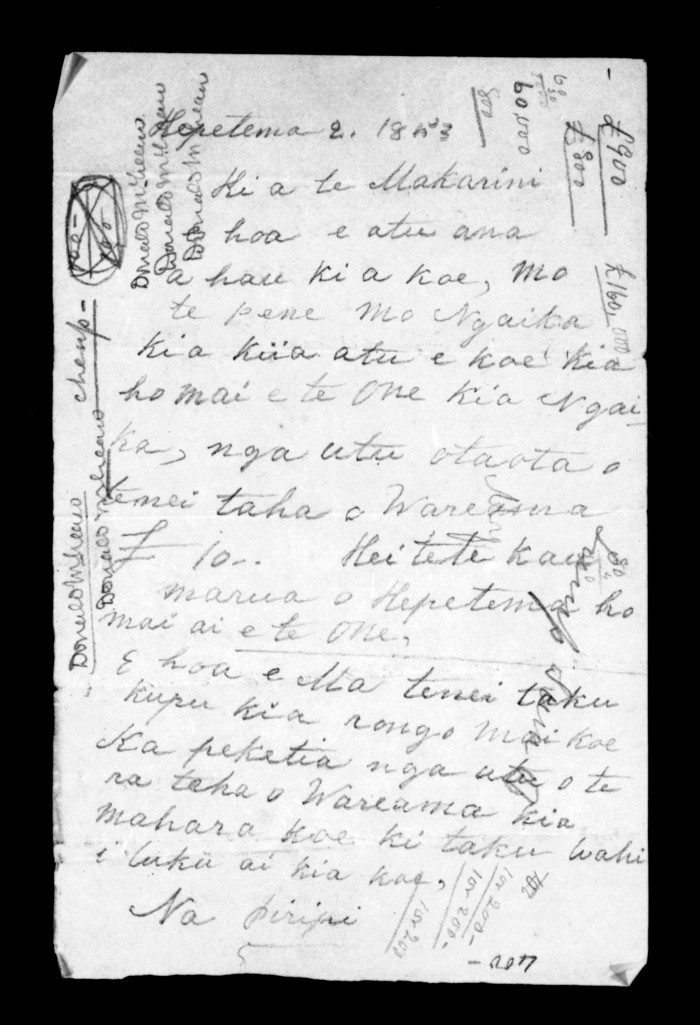 Hepetema 2. 1853
Ki a te Makarini
E hoa e atu ana
a hau ki a koe, mo
te pene mo Ngaika
kia kiia atu e koe kia
ho mai e te One kia Ngai-
ka, nga utu otaota o
tenei taha o Wareama
£ 10.. Hei te te kau
marua o Hepetema ho
mai ai e te One,
E hoa e Ma tenei taku
kupu kia rongo mai koe
Ka peketia nga utu o te
ra taha o Wareama kia
mahara koe ki taku wahi
i tuku ai kia koe,
Na Piripi
Donald McLean
Donald McLean
Donald McLean
Donald McLean
Donald McLean
cheap
£900
£800
£160,000
60,000
800
100 200
100 200
100 200